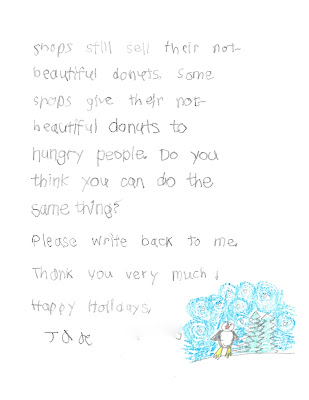 shops still sell their not-
beautiful donuts. Some
shops give their not-
beautiful donuts to
hungry people. Do you
think you can do the
same thing?
Please write back to me.
Thank you very much.
Happy Holidays,